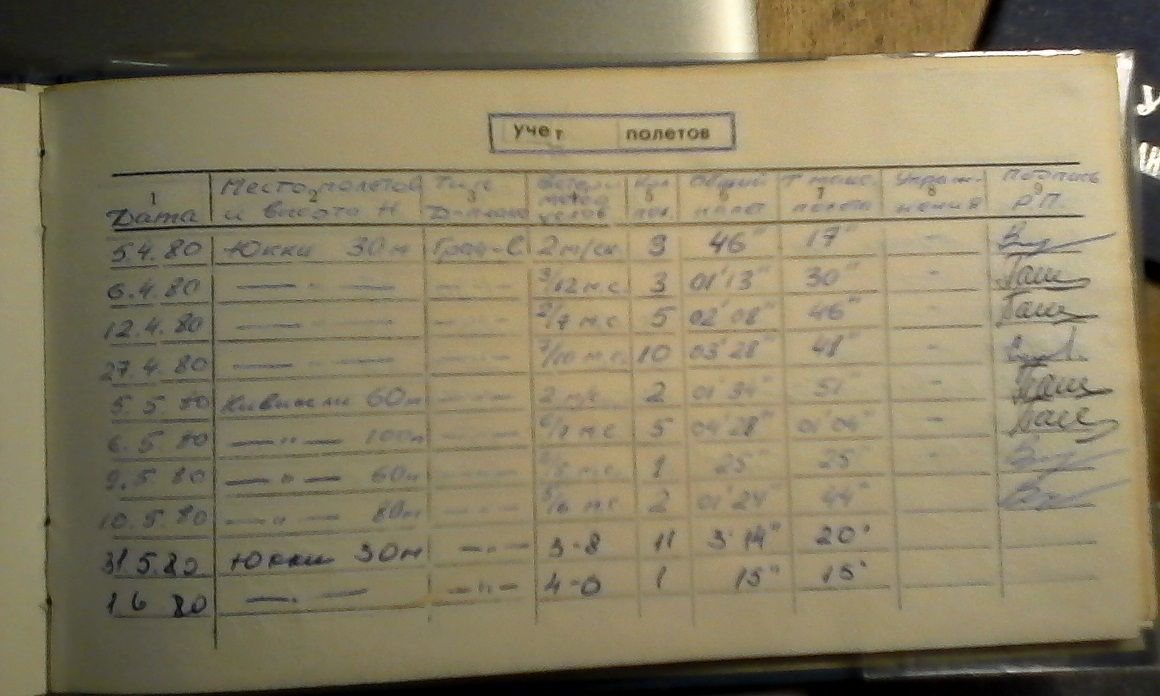 учет полетов
1 2 3 4 5 6 7 8 9
Дата Место полетов и высота Н Тип Ветер Кол. пол. Общий налет Т макс. полета Упраж- нения Подпись Р.П.
5.4.80 Юкки 30м 2 м/ск 3 46" 17" -
6.4.80 — " — — " — 3/12 м.с. 3 01'13" 30" -
12.4.80 — " — — " — м.с 5 02'08" 46" -
27.4.80 — " — — " — 7/10 м.с. 10 03'28" 48" -
5.5.80 60м — " — 2 2 01'34" 51" -
6.5.80 — " — 100м — " — м.с 5 04'28" 01'04" -
9.5.80 — " — 60м — " — м.с. 1 25" 25" -
10.5.80 — " — 80м — " — 5/6 м.с 2 01'24" 44"
31.5.80 Юкки 30м — " — 3-8 11 3'14" 20"
1.6.80 — " — — " — 4-0 1 15" 15"